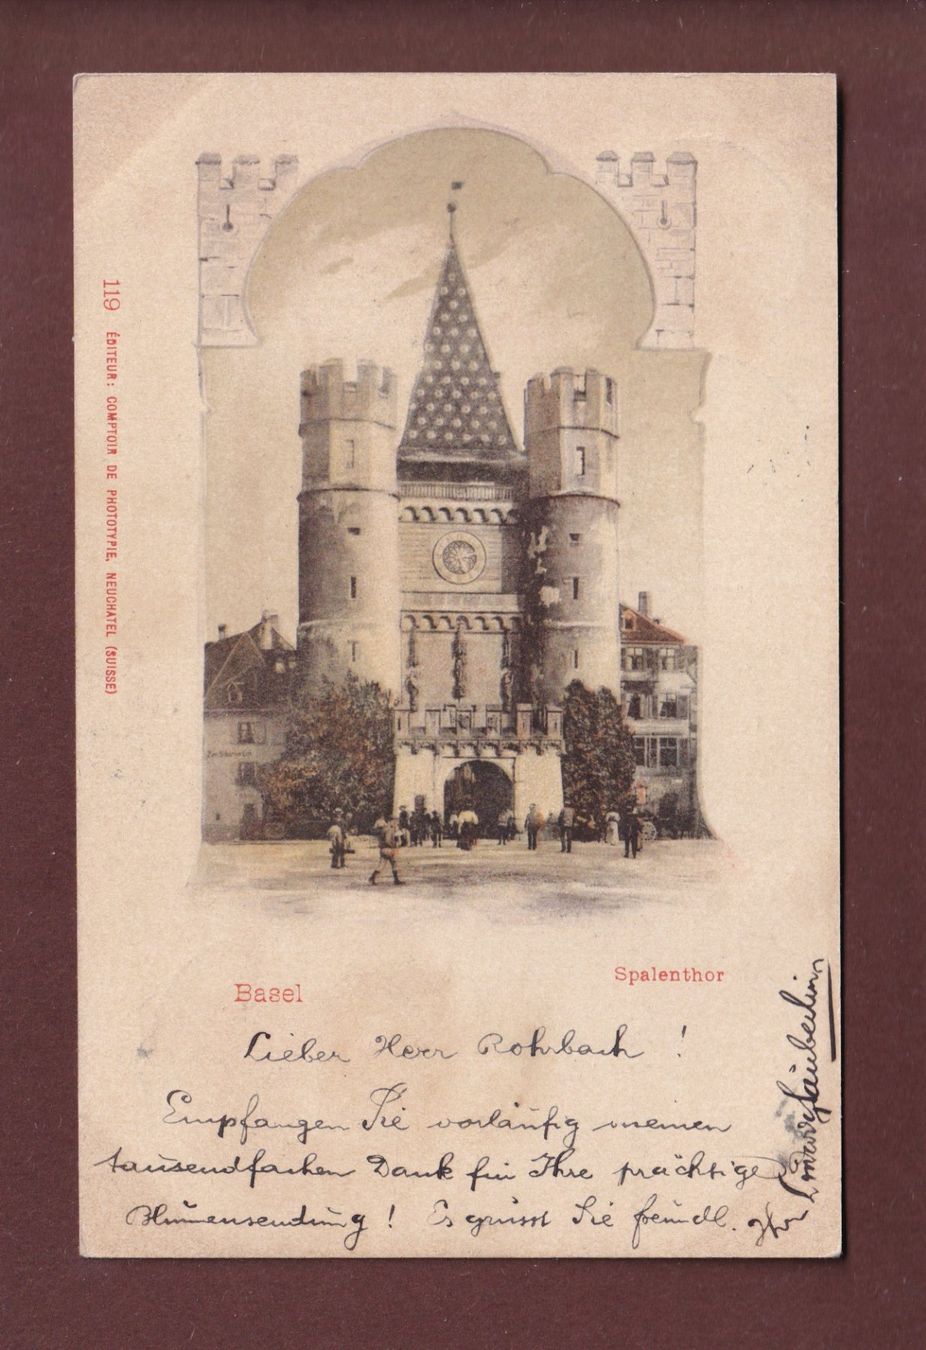 119 ÉDITEUR: COMPTOIR DE PHOTOTYPIE, NEUCHATEL (SUISSE)
Basel
Spalenthor
Lieber Herr Rohrbach !
Empfangen Sie vorläufig meinen
tausendfachen Dank für Ihre prächtige
Blumensendung ! Es grüsst Sie freundl. Ihr